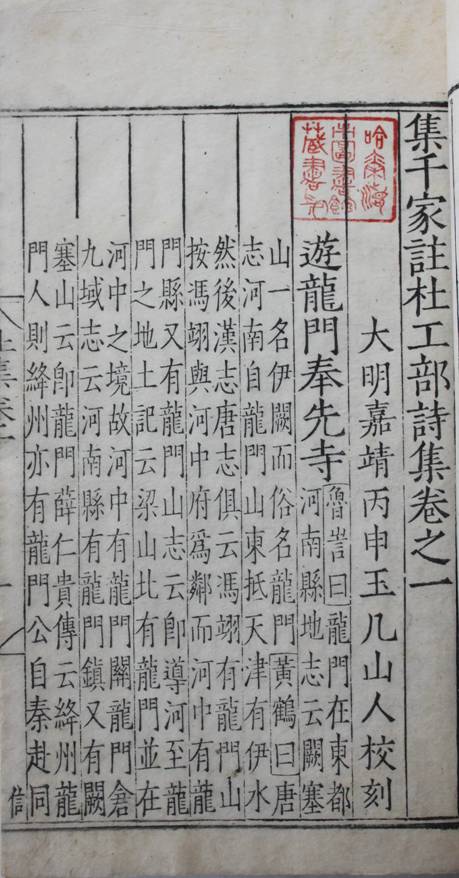 集千家註杜工部詩集卷之一
大明嘉靖丙申玉几山人校刻
遊龍門奉先寺
魯訔曰龍門在東都
河南縣地志云闕塞
山一名伊闕而俗名龍門黃鶴曰唐
志河南自龍門山東抵天津有伊水
然後漢志唐志俱云馮翊有龍門山
按馮翊與河中府爲鄰而河中有龍
門縣又有龍門山志云卽導河至龍
門之地土記云梁山北有龍門並在
河中之境故河中有龍門關龍門倉
九域志云河南縣有龍門鎮又有闕
塞山云卽龍門薛仁貴傳云絳州龍
門人則絳州亦有龍門公自秦赴同
圖書館
藏書印